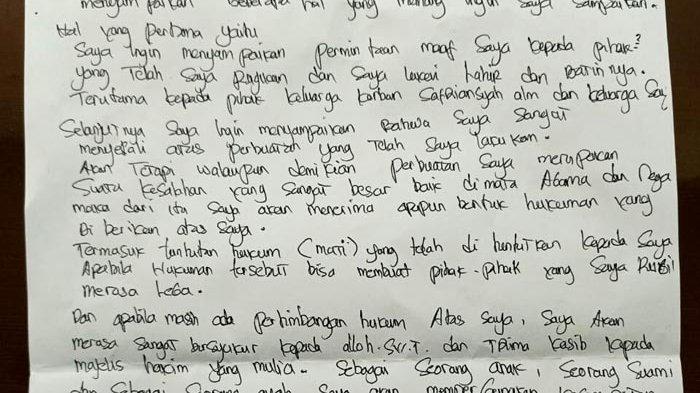 menyampaikan beberapa hal yang memang ingin saya sampaikan.
Hal yang pertama yaitu
Saya ingin menyampaikan permintaan maaf saya kepada pihak²
yang telah saya rugikan dan saya lukai lahir dan batinnya.
Terutama kepada pihak keluarga korban Safriansyah alm dan keluarga Saj
Selanjutnya saya ingin menyampaikan bahwa saya sangat
menyesali atas perbuatan yang telah saya lakukan.
Akan tetapi walaupun demikian perbuatan saya merupakan
suatu kesalahan yang sangat besar baik di mata Agama dan Nega
maka dari itu saya akan menerima apapun bentuk hukuman yang
di berikan atas saya.
Termasuk tuntutan hukum (mati) yang telah di tuntutkan kepada saya
Apabila Hukuman tersebut bisa membuat pihak-pihak yang saya
merasa lega.
Dan apabila masih ada pertimbangan hukum Atas saya, saya Akan
merasa sangat bersyukur kepada Alloh.SW.T. dan Trima kasih kepada
majelis hakim yang mulia. Sebagai seorang anak, seorang suami
dan sebagai seorang ayah saya akan